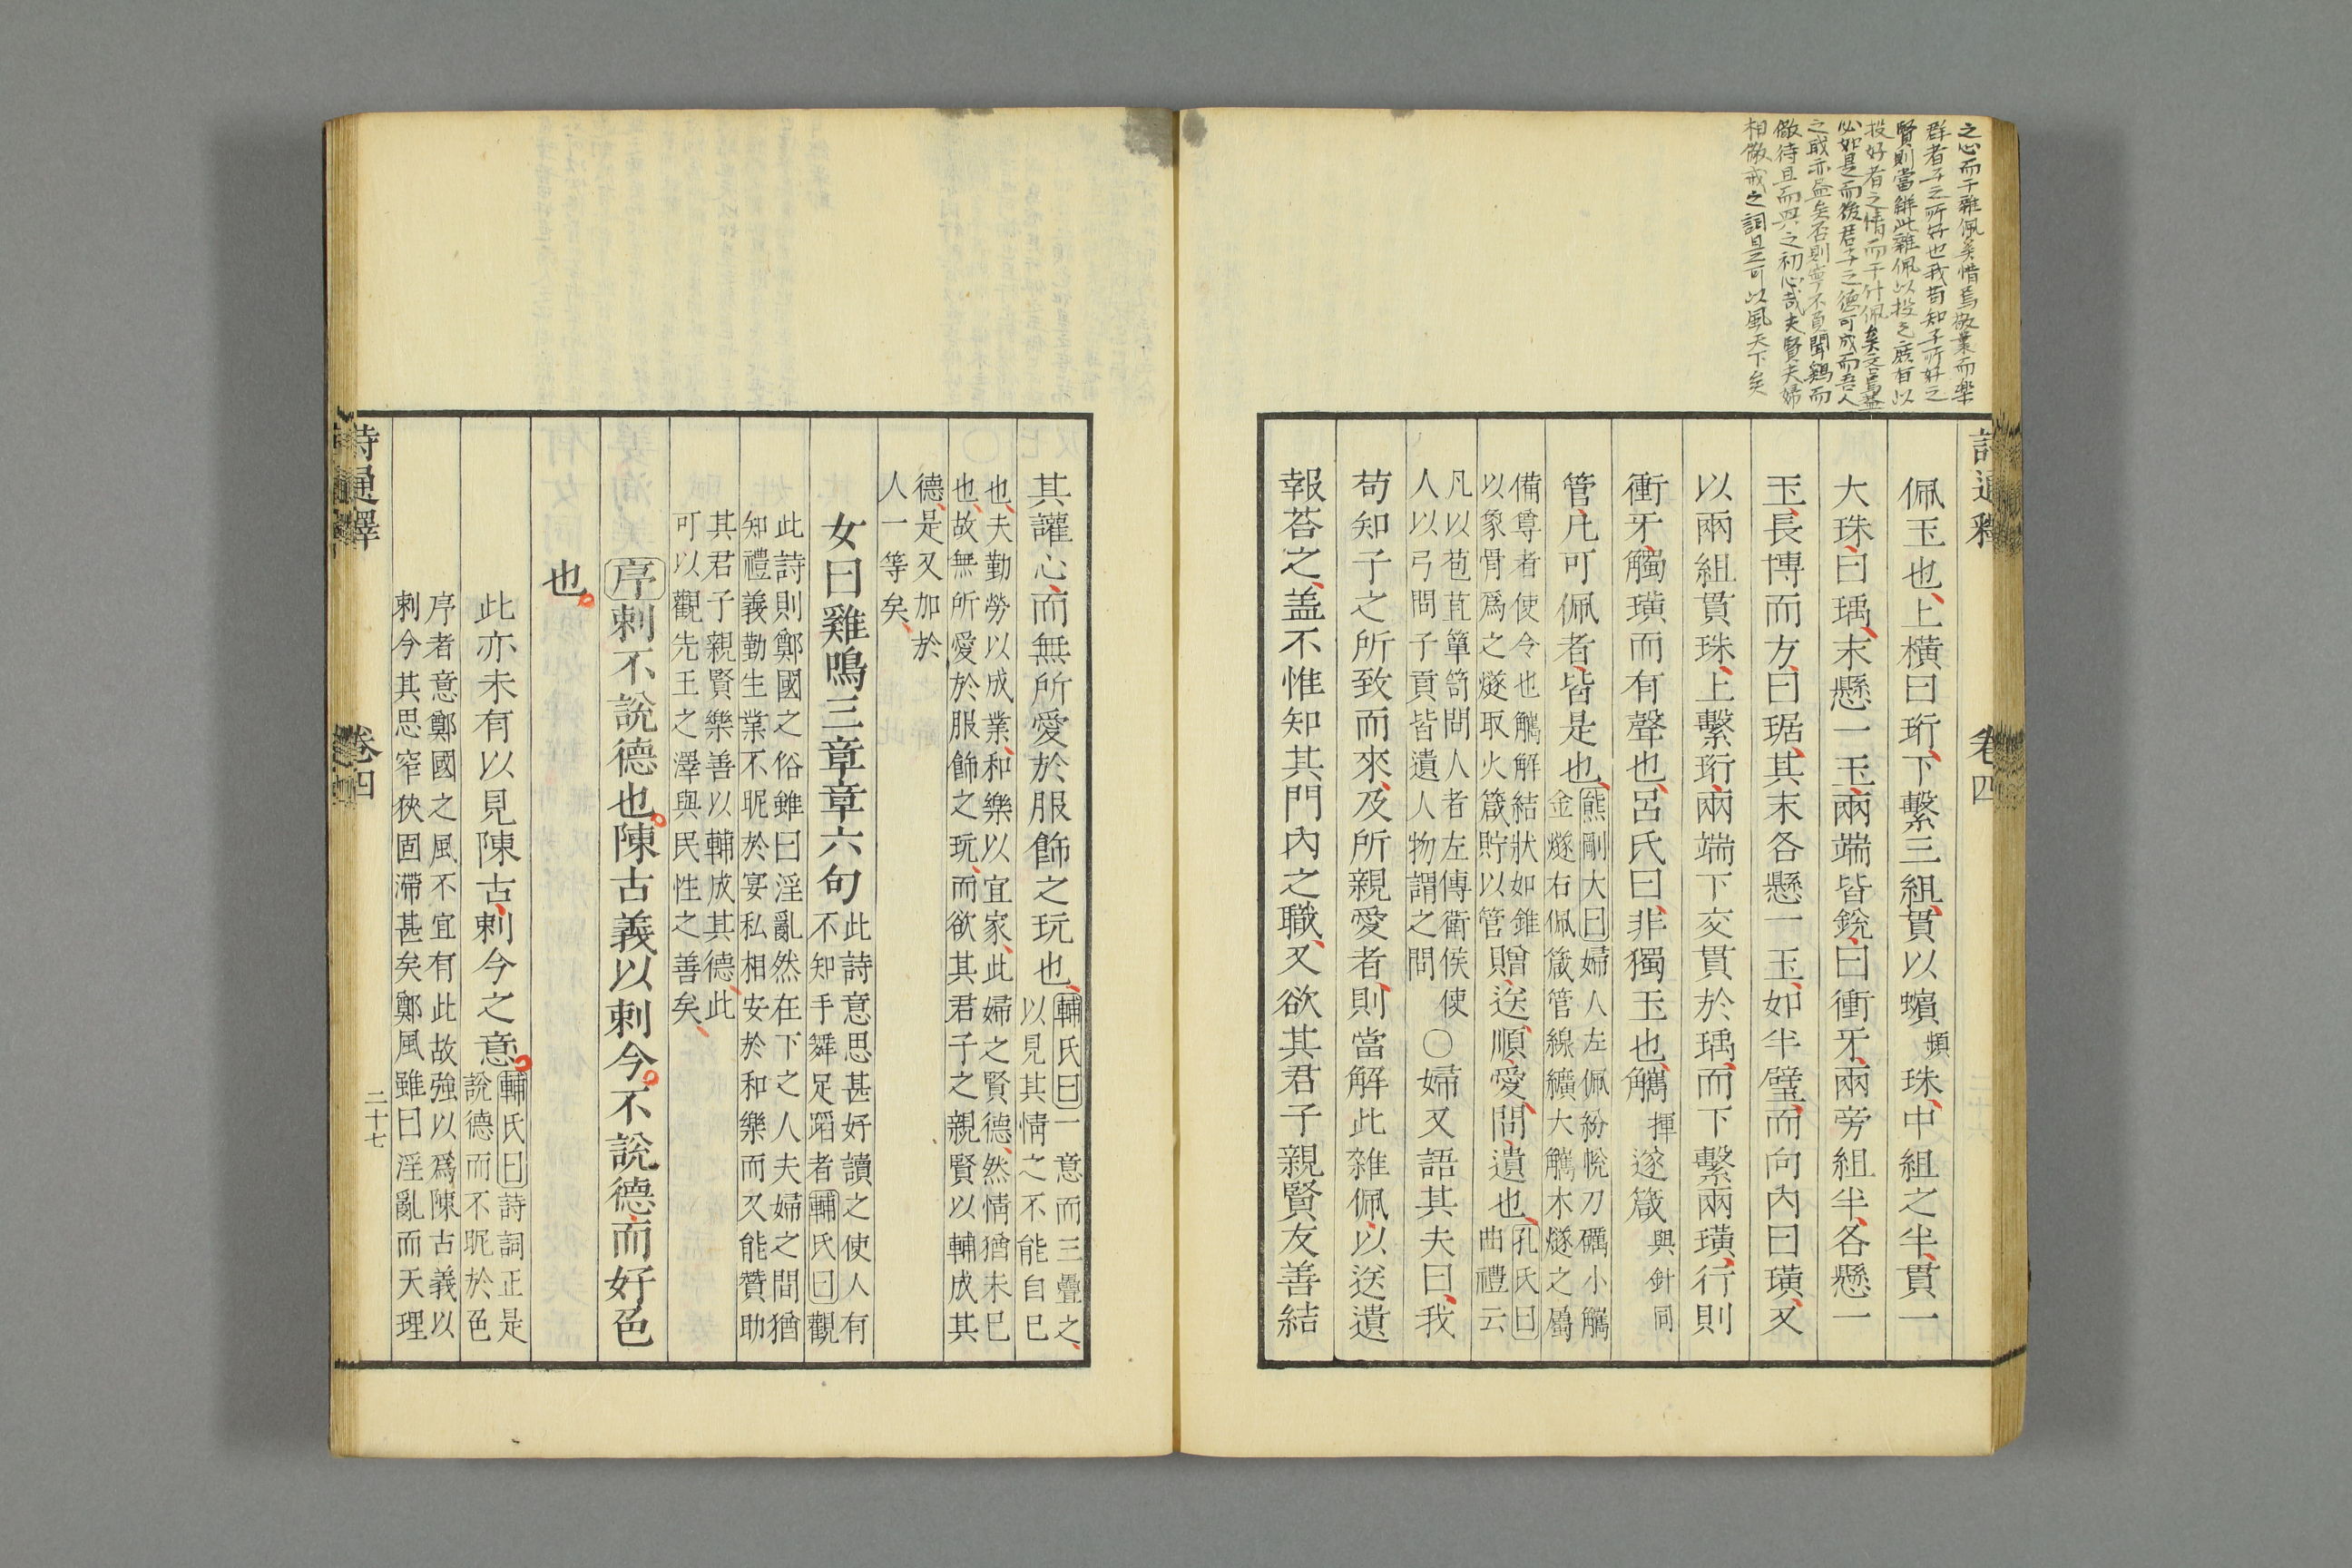 之心而于雜佩矣惜焉敬業而樂
群者子之所好也我苟知子所好之
賢則當解此雜佩以投之庶有以
投好者之情而于什佩矣
必如是而後君子之德可成而吾人
之戒亦益矣否則寧不負聞鷄而
儆待旦而興之初心哉夫賢夫婦
相儆戒之詞是可以風天下矣
詩通釋 卷四
佩玉也上橫曰珩下繫三組貫以蠙頻珠中組之半貫一
大珠曰瑀末懸一玉兩端皆銳曰衝牙兩旁組半各懸一
玉長博而方曰琚其末各懸一玉如半璧而向內曰璜又
以兩組貫珠上繫珩兩端下交貫於瑀而下繫兩璜行則
衝牙觸璜而有聲也呂氏曰非獨玉也觿揮遂箴與針同
管凡可佩者皆是也熊剛大曰婦人左佩紛帨刀礪小觿
金燧右佩箴管線纊大觿木燧之屬
備尊者使令也觿解結狀如錐
以象骨爲之燧取火箴貯以管贈送順愛問遺也孔氏曰
曲禮云
凡以苞苴簞笥問人者左傳衛侯使
人以弓問子貢皆遺人物謂之問〇婦又語其夫曰我
苟知子之所致而來及所親愛者則當解此雜佩以送遺
報荅之蓋不惟知其門內之職又欲其君子親賢友善結
其讙心而無所愛於服飾之玩也輔氏曰一意而三疊之
以見其情之不能自已
也夫勤勞以成業和樂以宜家此婦之賢德然情猶未已
也故無所愛於服飾之玩而欲其君子之親賢以輔成其
德是又加於
人一等矣
女曰雞鳴三章章六句此詩意思甚好讀之使人有
不知手舞足蹈者輔氏曰觀
此詩則鄭國之俗雖曰淫亂然在下之人夫婦之間猶
知禮義勤生業不昵於宴私相安於和樂而又能贊助
其君子親賢樂善以輔成其德此
可以觀先王之澤與民性之善矣
序刺不說德也陳古義以刺今不說德而好色
也
此亦未有以見陳古刺今之意輔氏曰詩詞正是
說德而不昵於色
序者意鄭國之風不宜有此故強以爲陳古義以
刺今其思窄狹固滯甚矣鄭風雖曰淫亂而天理
詩通釋 卷四 二十七